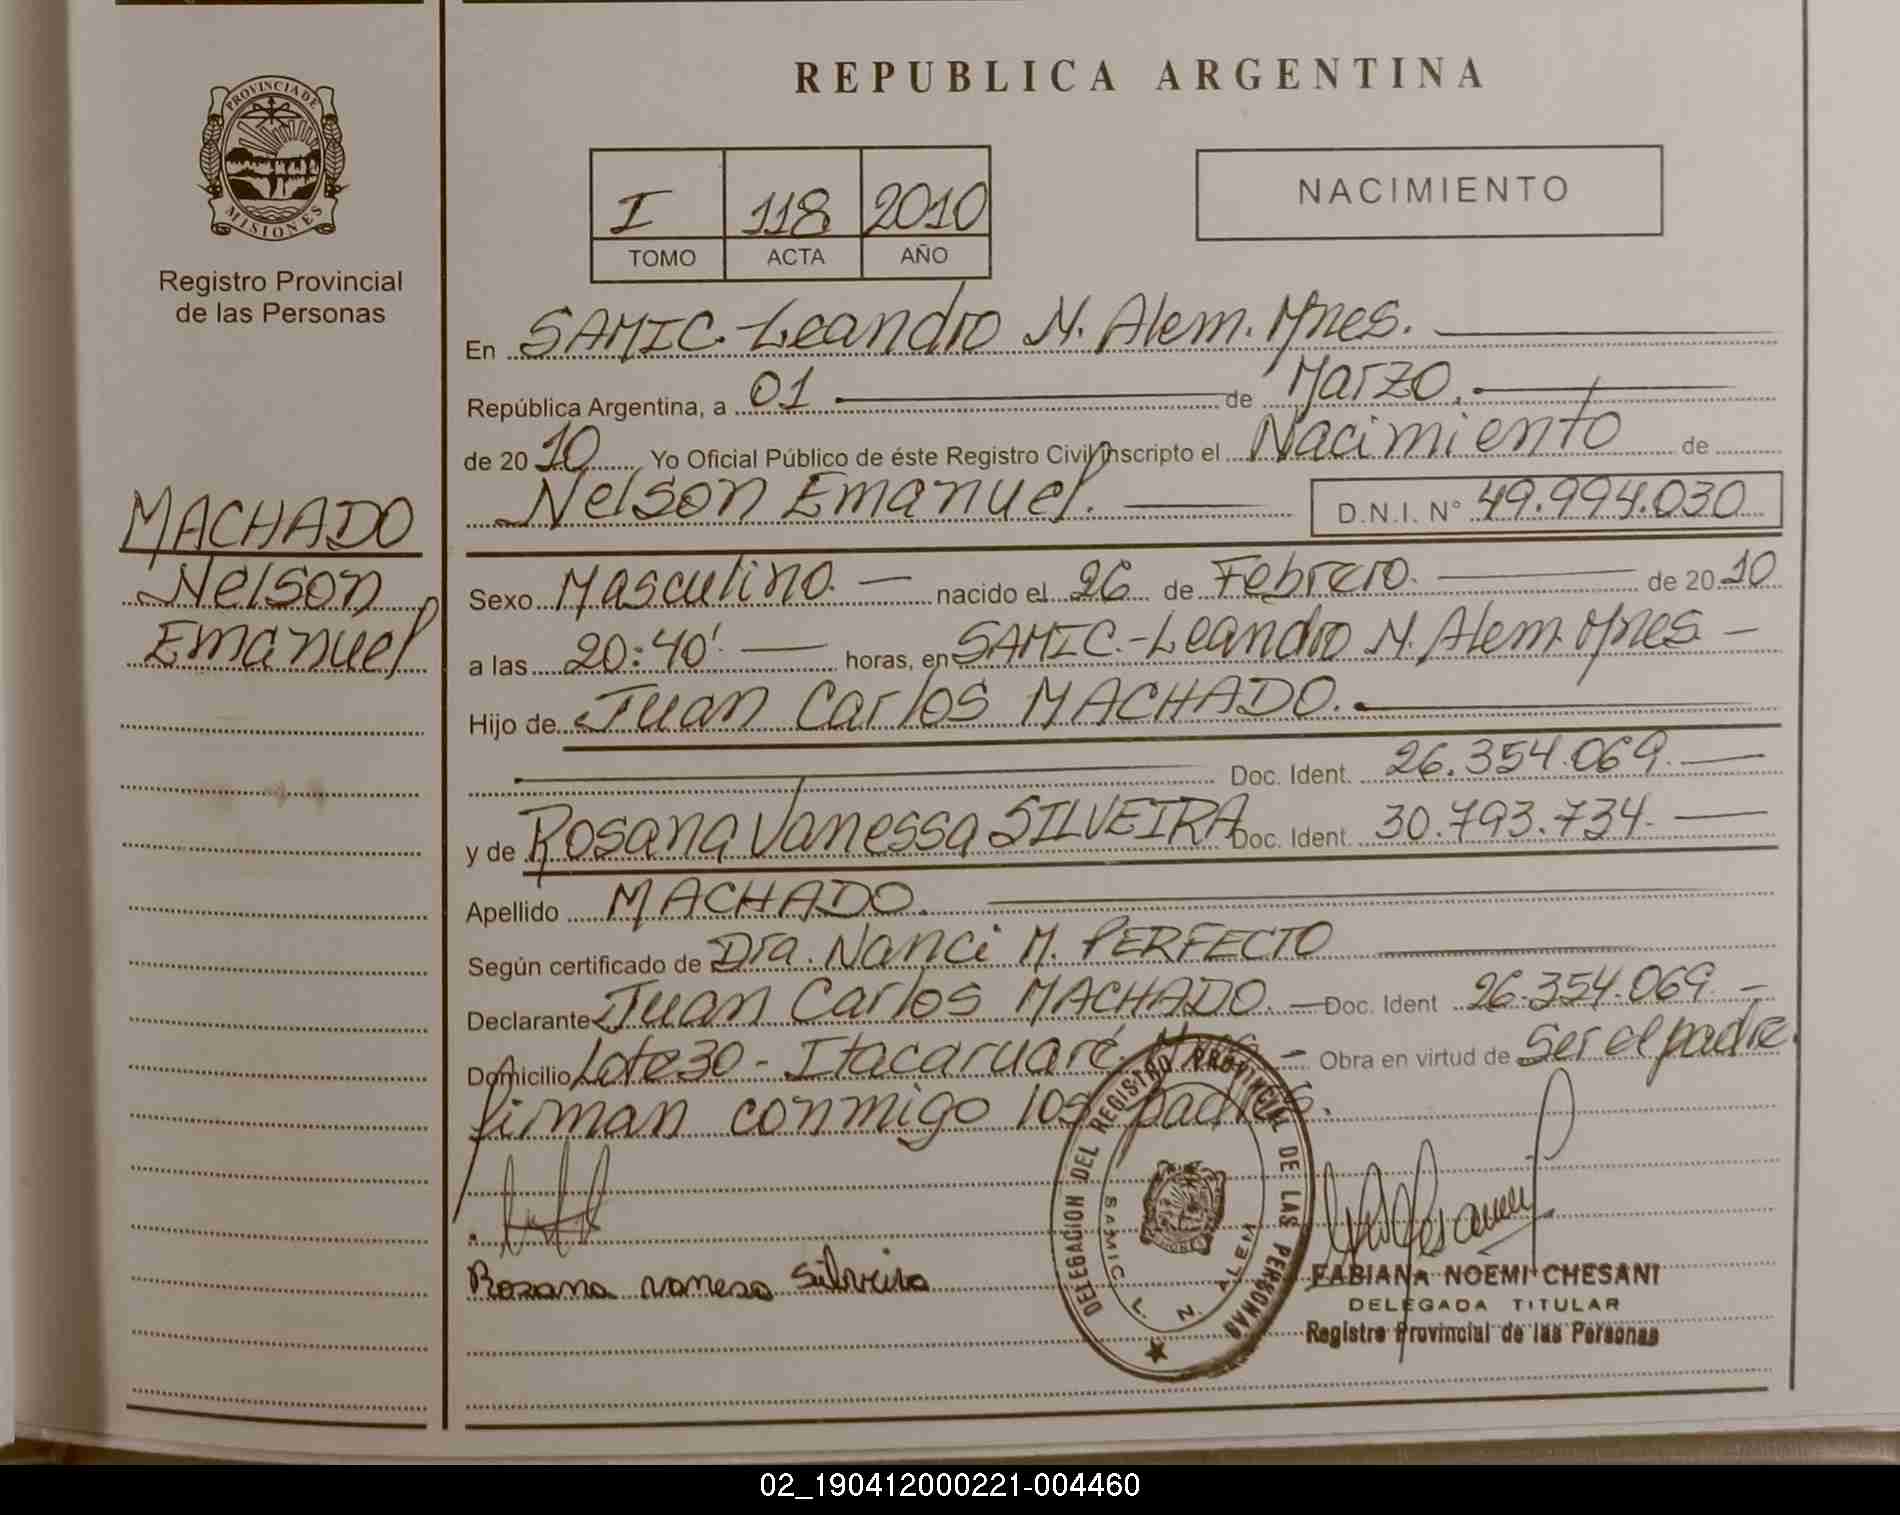 REPUBLICA ARGENTINA
PROVINCIA DE MISIONES
Registro Provincial
de las Personas
I 118 2010
TOMO ACTA AÑO
NACIMIENTO
En SAMIC.-Leandro N. Alem. Mnes.
República Argentina, a 01 de Marzo.
de 2010 Yo Oficial Público de éste Registro Civil inscripto el Nacimiento de
Nelson Emanuel. D.N.I. N° 49.994.030
MACHADO
Nelson
Emanuel
Sexo Masculino. nacido el 26 de Febrero. de 2010
a las 20:40' horas, en SAMIC.-Leandro N. Alem. Mnes.
Hijo de Juan Carlos MACHADO.
Doc. Ident. 26.354.069.
y de Rosana Vanessa SILVEIRA Doc. Ident. 30.793.734.
Apellido MACHADO.
Según certificado de Dra. Nanci M. PERFECTO
Declarante Juan Carlos MACHADO. Doc. Ident 26.354.069
Domicilio Lote 30 - Itacaruaré. Obra en virtud de Ser el padre.
firman conmigo los padres.
DELEGACION DEL REGISTRO PROVINCIAL DE LAS PERSONAS
SAMIC L. N. ALEM
Rosana vanesa Silveira
FABIANA NOEMI CHESANI
DELEGADA TITULAR
Registro Provincial de las Personas
02_190412000221-004460